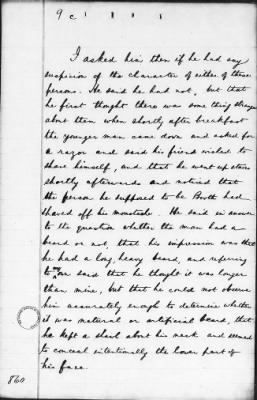 9 c
I asked him then if he had any
suspicion of the character of either of these
persons. He said he had not, but that
he first thought there was some thing strange
about them when shortly after breakfast
the younger man came down and asked for
a razor and said his friend wished to
shave himself, and that he went up stairs
shortly afterwards and noticed that
the person he supposed to be Booth had
shaved off his moustache. He said in answer
to the question whether the man had a
beard or not, that his impression was that
he had a long, heavy beard, and referring
to me said that he thought it was longer
than mine, but that he could not observe
him accurately enough to determine whether
it was natural or artificial beard, that
he kept a shawl about his neck and seemed
to conceal intentionally the lower part of
his face.
860